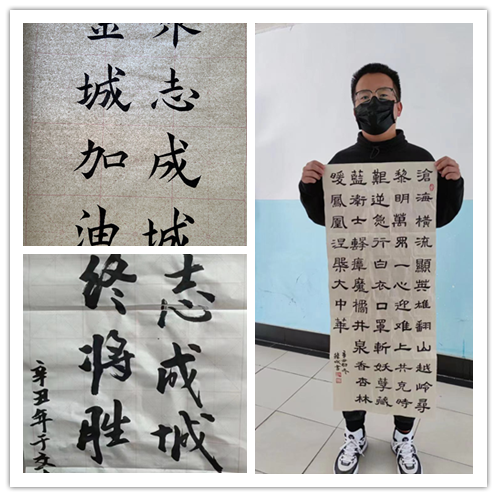 志成城
金城加油
志成城
终将胜
辛丑年于
滄海橫流顯英雄翻山越岭尋
黎明萬众一心迎难上共克時
艱逆急行白衣口罩斬妖孽藏
藍衛士擊瘴魔橘井泉香杏林
暖鳳凰涅槃大中華